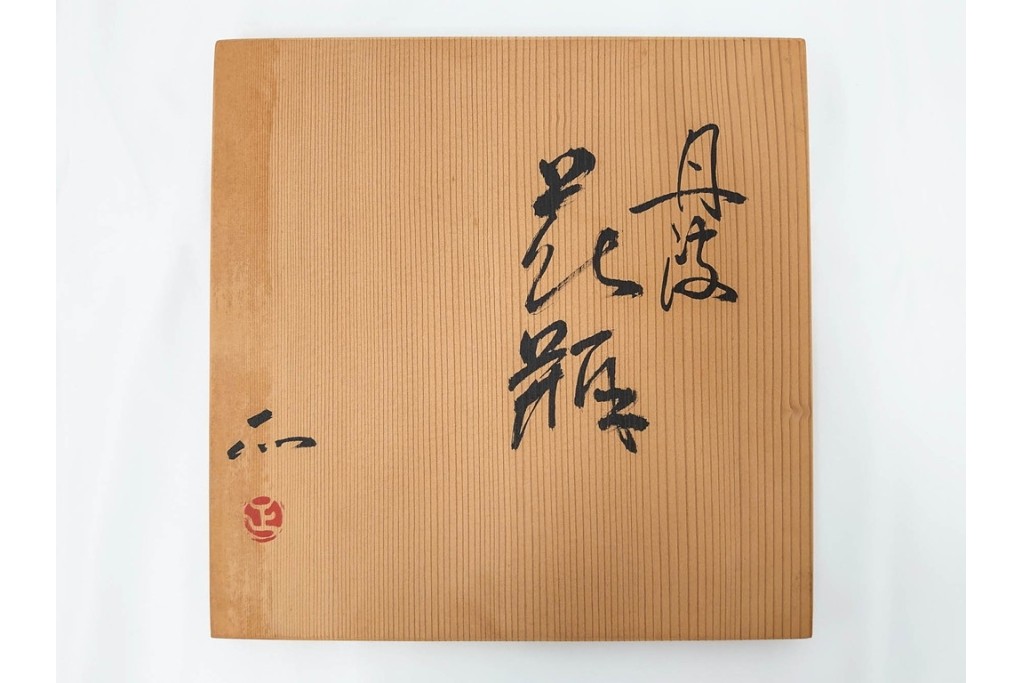 丹波
花瓶
正